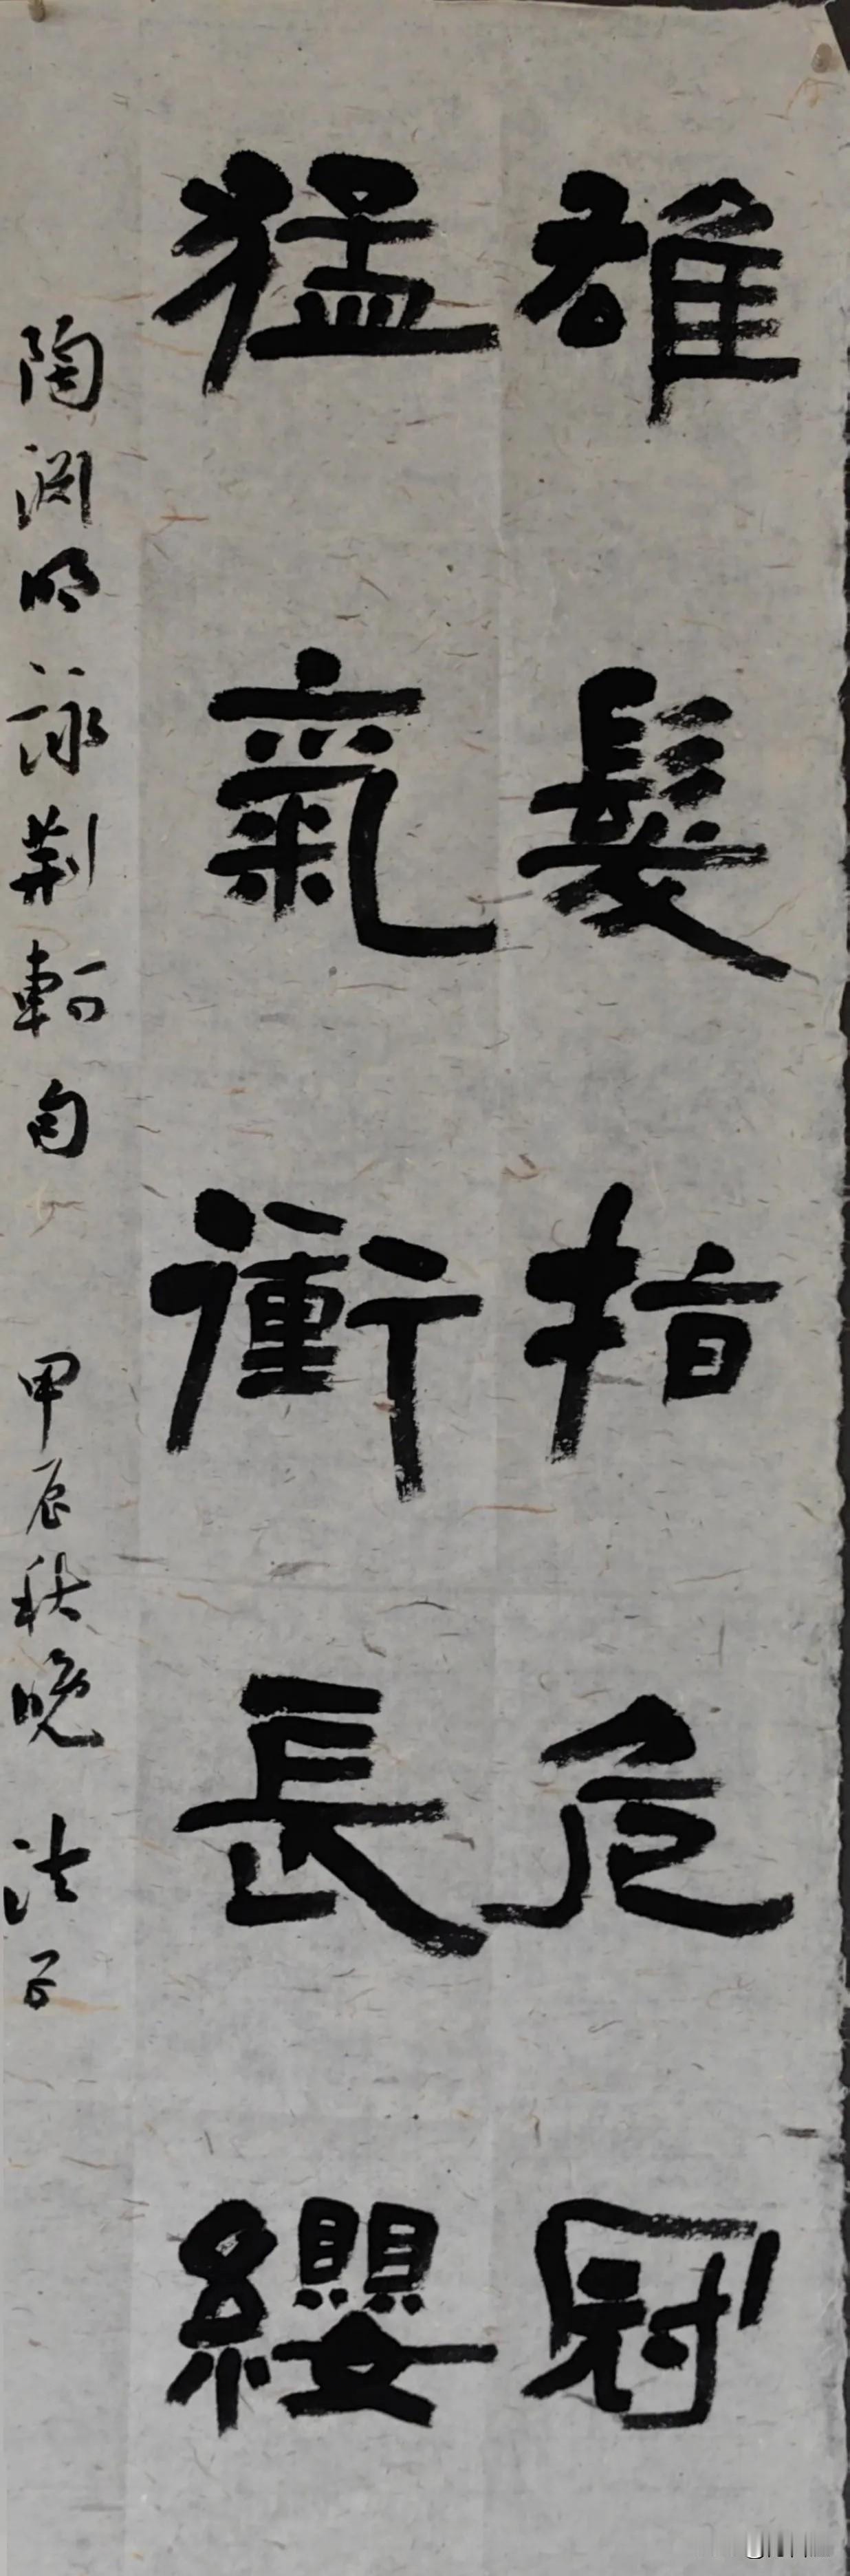 雄髮指危冠
猛氣衝長纓
陶渊明詠荆軻句 甲辰秋晚